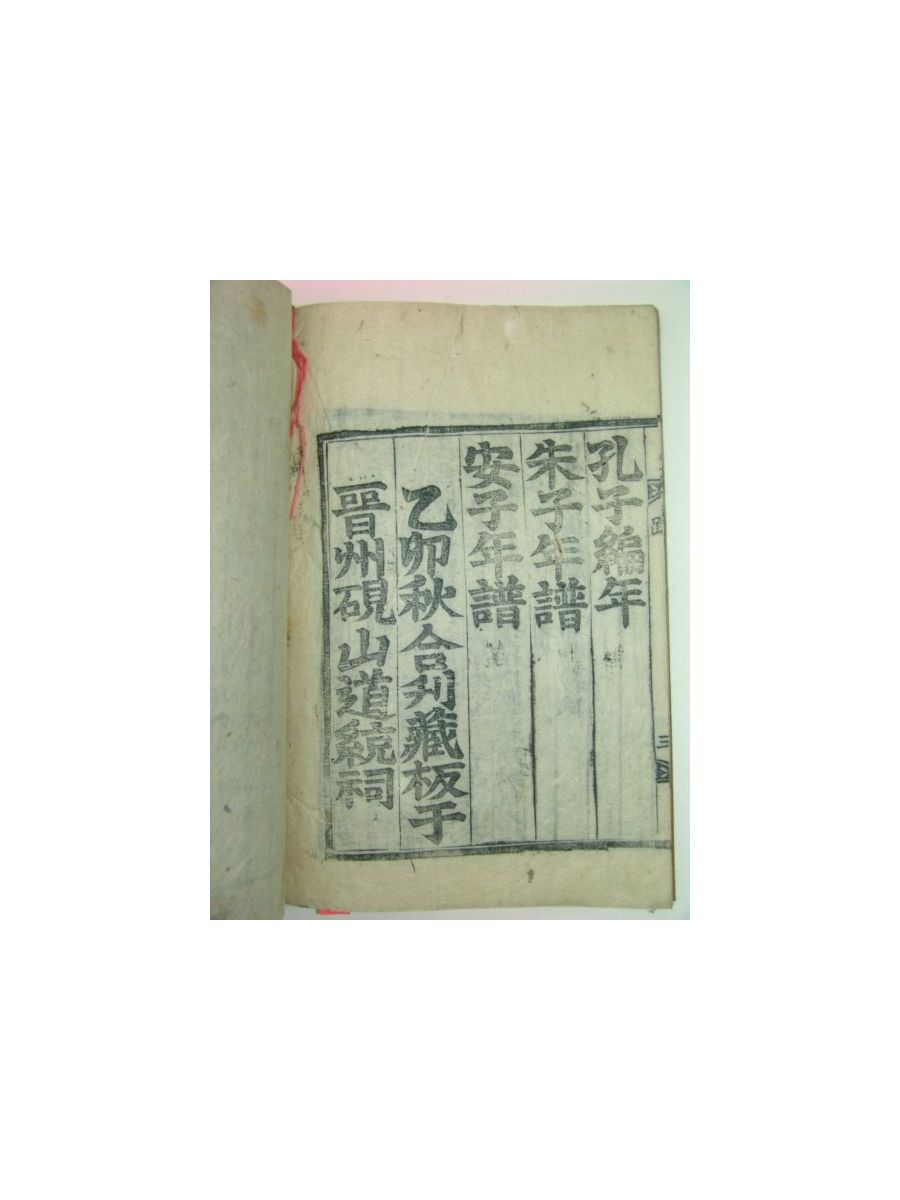 孔子編年
朱子年譜
安子年譜
乙卯秋合刋藏板于
晉州硯山道統祠
跋
三